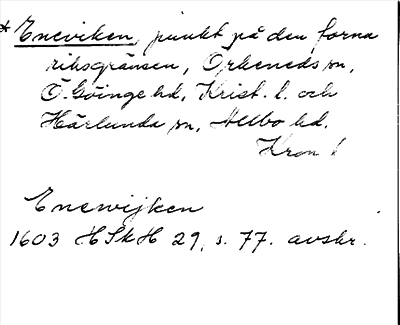 * Eneviken, punkt på den forna
riksgränsen, Örkeneds sn,
Ö. Göinge hd, Krist. l. och
Härlunda sn, Allbo hd,
Kron l
Enewijken
1603 HSkH 29, s. 77. avskr.